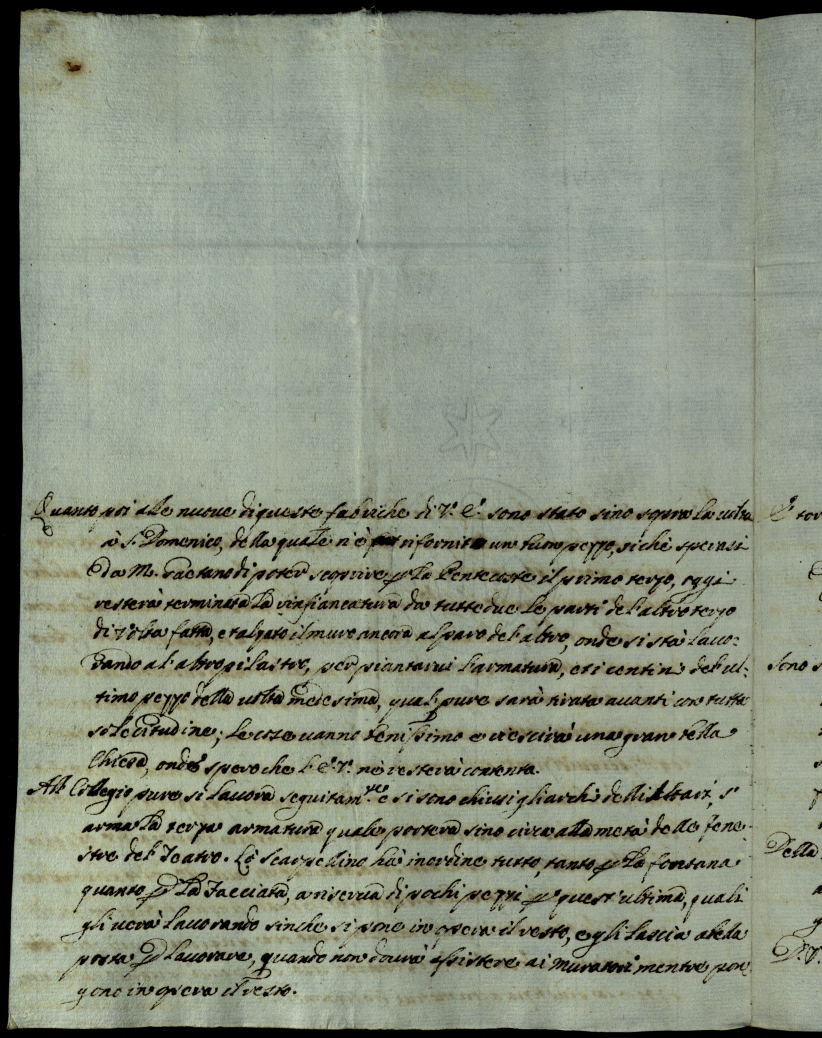 Quanto poi alle nuove di queste fabriche di V. E. sono stato sino sopra la volta
à S. Domenico, della quale n'è rifornito un buon pezzo, sichè sperasi
da M. Gaetano di poter seguire p la Pentecoste il primo terzo, oggi
resterà terminata la rinfiancatura da tutte due le parti del altro terzo
di volta fatta, e talzato il muro ancora al paro del altro, onde si stà lavo-
rando al altro pilastro, per piantarvi l'armatura, e ri centini del ul-
timo pezzo della volta medesima, quale pure sarà tirata avanti con tutta
solecitudine; le cose vanno benissimo e riescirà una gran bella
Chiesa, onde spero che l'E. V. ne resterà contenta.
Al Collegio pure si lavora seguitam.te e si sono chiusi gli archi delli Altari, s'
arma la terza armatura quale porterà sino circa alla metà delle fene-
stre del Teatro. Lo Scarpellino hà in ordine tutto, tanto p la fontana
quanto p la Facciata, a riserva di pochi pezzi p quest'ultima, quali
gli verà lavorando sinche si pone in opera il resto, e gli lascia
posta p lavorare, quando non dourà assistere ai muratori mentre pon-
gono in opera il resto.
E tor
Sono s
Della